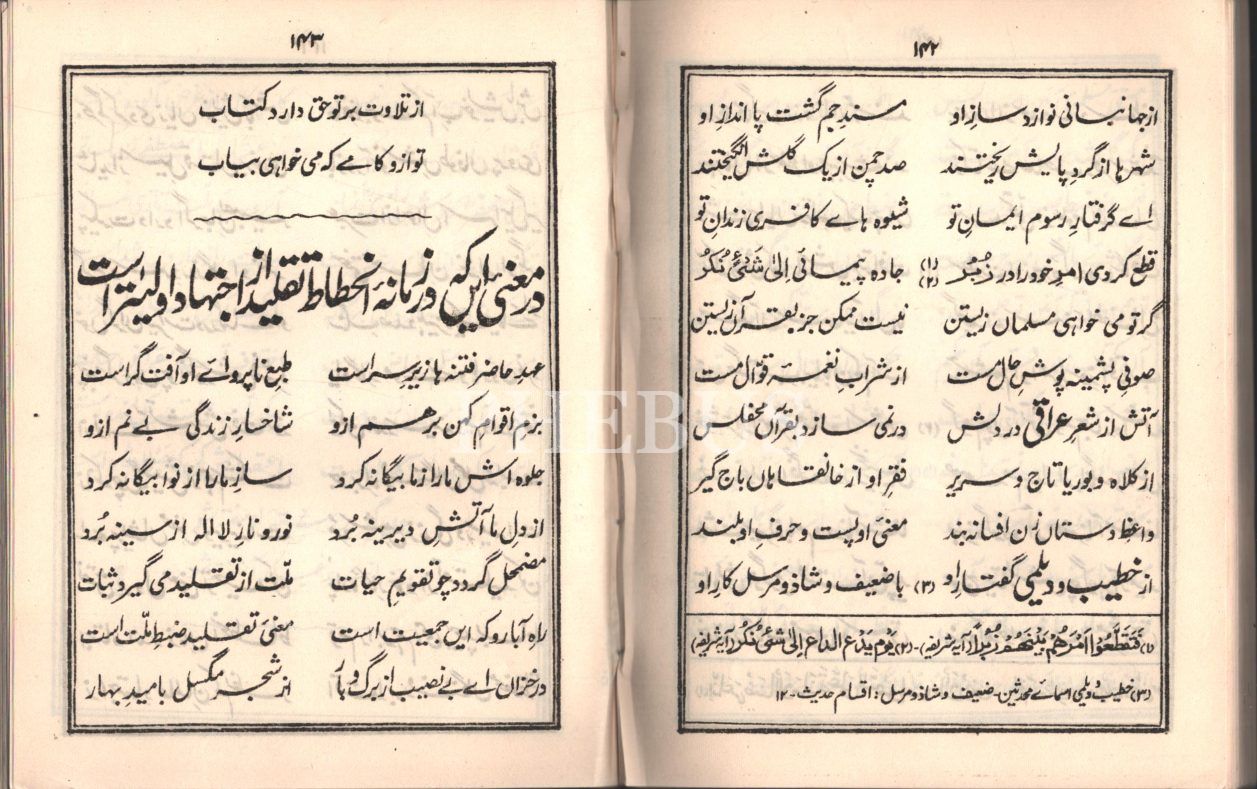 ۱۴۲
از جہانبانی نوازد سازِ او مسندِ جم گشت پا اندازِ او
شہر ہا از گردِ پایش ریختند صد چمن از یک گلش انگیختند
اے گرفتارِ رسوم ایمانِ تو شیوہ ہاے کافری زندانِ تو
قطع کردی امرِ خود را در زُبُر (۱) (۲) جادہ پیمائی اِلیٰ شَیْءٍ نُّکُر
گر تو می خواہی مسلماں زیستن نیست ممکن جز بقرآں زیستن
صوفیِ پشمینہ پوشِ حال مست از شرابِ نغمۂ قوّال مست
آتش از شعرِ عراقی در دلش در نمی سازد بقرآں محفلش
از کلاہ و بوریا تاج و سریر فقرِ او از خانقاہاں باج گیر
واعظِ دستاں زن افسانہ بند معنیٔ او پست و حرفِ او بلند
از خطیب و دیلمی گفتارِ او (۳) با ضعیف و شاذ و مرسل کارِ او
(۱) فَتَقَطَّعُوْا اَمْرَھُمْ بَیْنَھُمْ زُبُراً (آیہ شریفہ) - (۲) یَوْمَ یَدْعُ الداعِ اِلیٰ شَیْءٍ نُّکُر (آیہ شریفہ)
(۳) خطیب و دیلمی اسمائے محدثین - ضعیف و شاذ و مرسل : اقسام حدیث - ۱۲
۱۴۳
از تلاوت بر تو حق دارد کتاب
تو ازو کامے کہ می خواہی بیاب
در معنیٔ ایں کہ در زمانۂ انحطاط تقلید از اجتہاد اولیٰ تر است
عہدِ حاضر فتنہ ہا زیرِ سر است طبع ناپرواۓ او آفت گر است
بزمِ اقوامِ کہن برہم ازو شاخسارِ زندگی بے نم ازو
جلوہ اش ما را ز ما بیگانہ کرد سازِ ما را از نوا بیگانہ کرد
از دلِ ما آتشِ دیرینہ بُرد نور و نارِ لاالہ از سینہ بُرد
مضمحل گردد چو تقویمِ حیات ملّت از تقلید می گیرد ثبات
راہِ آبا رو کہ ایں جمعیت است معنیٔ تقلید ضبطِ ملّت است
در خزاں اے بے نصیب از برگ و بار از شجر مگسل بامیدِ بہار